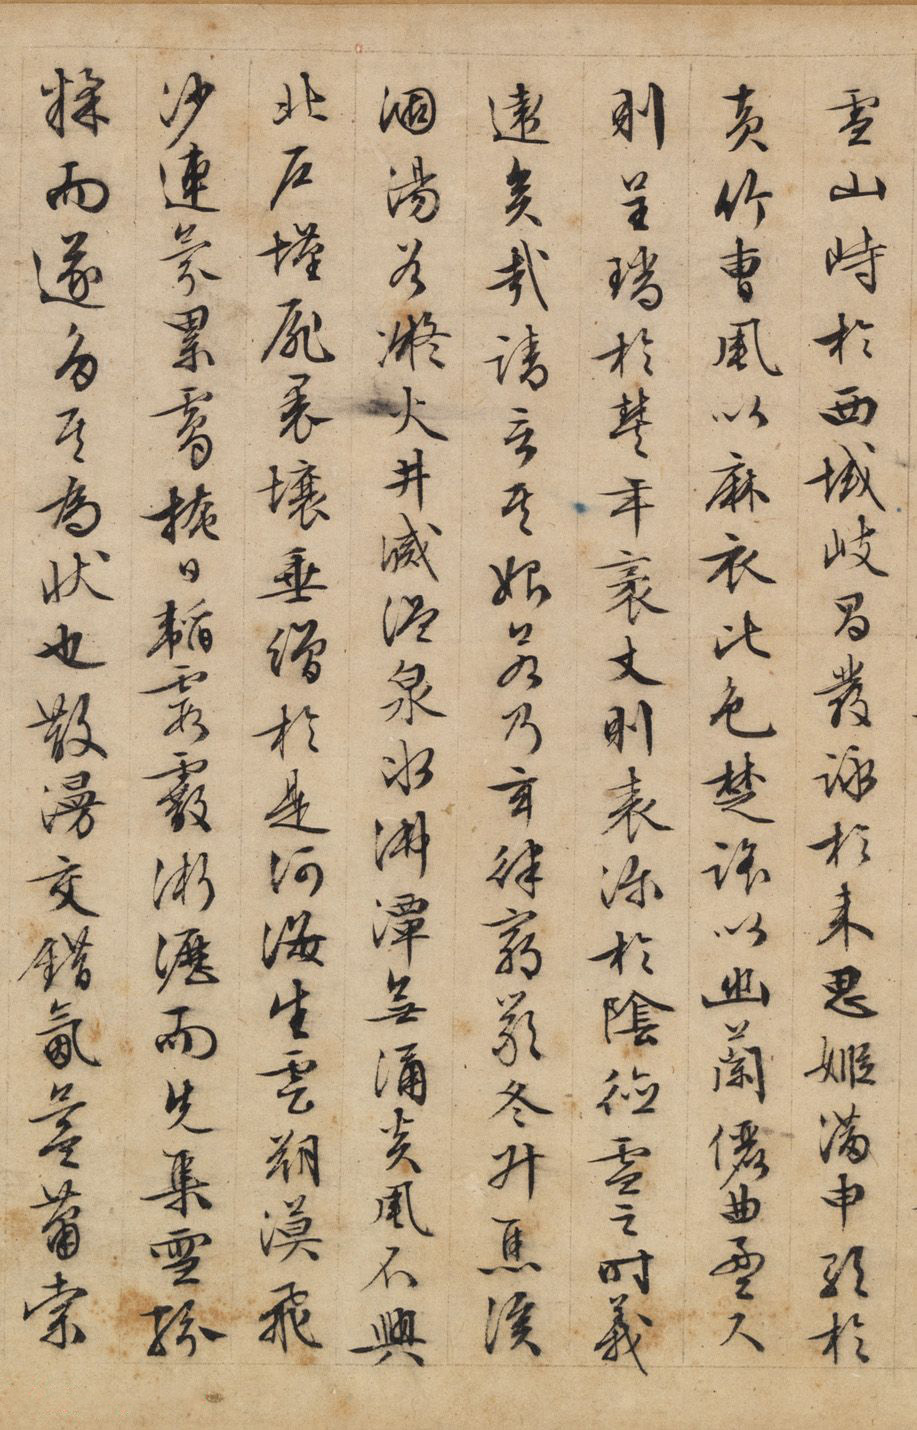 雪山峙於西域岐昌發詠於来思姬滿申歌於
黃竹曹風以麻衣比色楚謠以幽蘭儷曲盈尺
則呈瑞於豐年袤丈則表沴於陰德雪之時義
遠矣哉請言其始若乃玄律窮嚴氣升焦溪
涸湯谷凝火井滅溫泉冰沸潭無涌炎風不興
北戶墐扉裸壤垂繒於是河海生雲朔漠飛
沙連氛累靄掩日韜霞霰淅瀝而先集雪紛
糅而遂多其為狀也散漫交錯氛氳蕭索